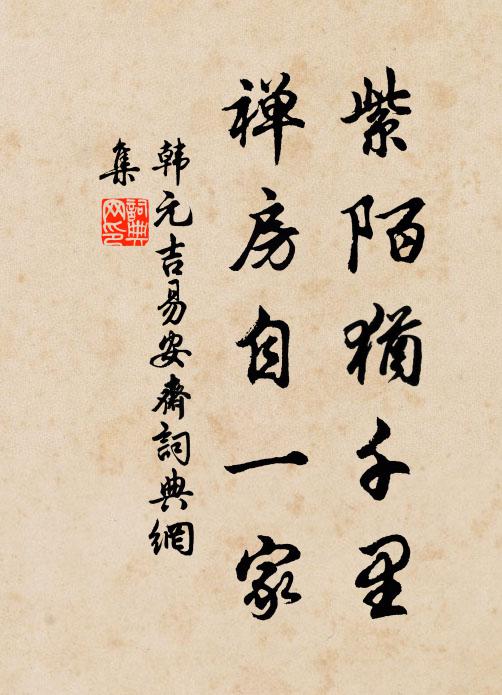 紫陌犹千里
禅房自一家
韩元吉易安齋詞典網
集
詞典网印